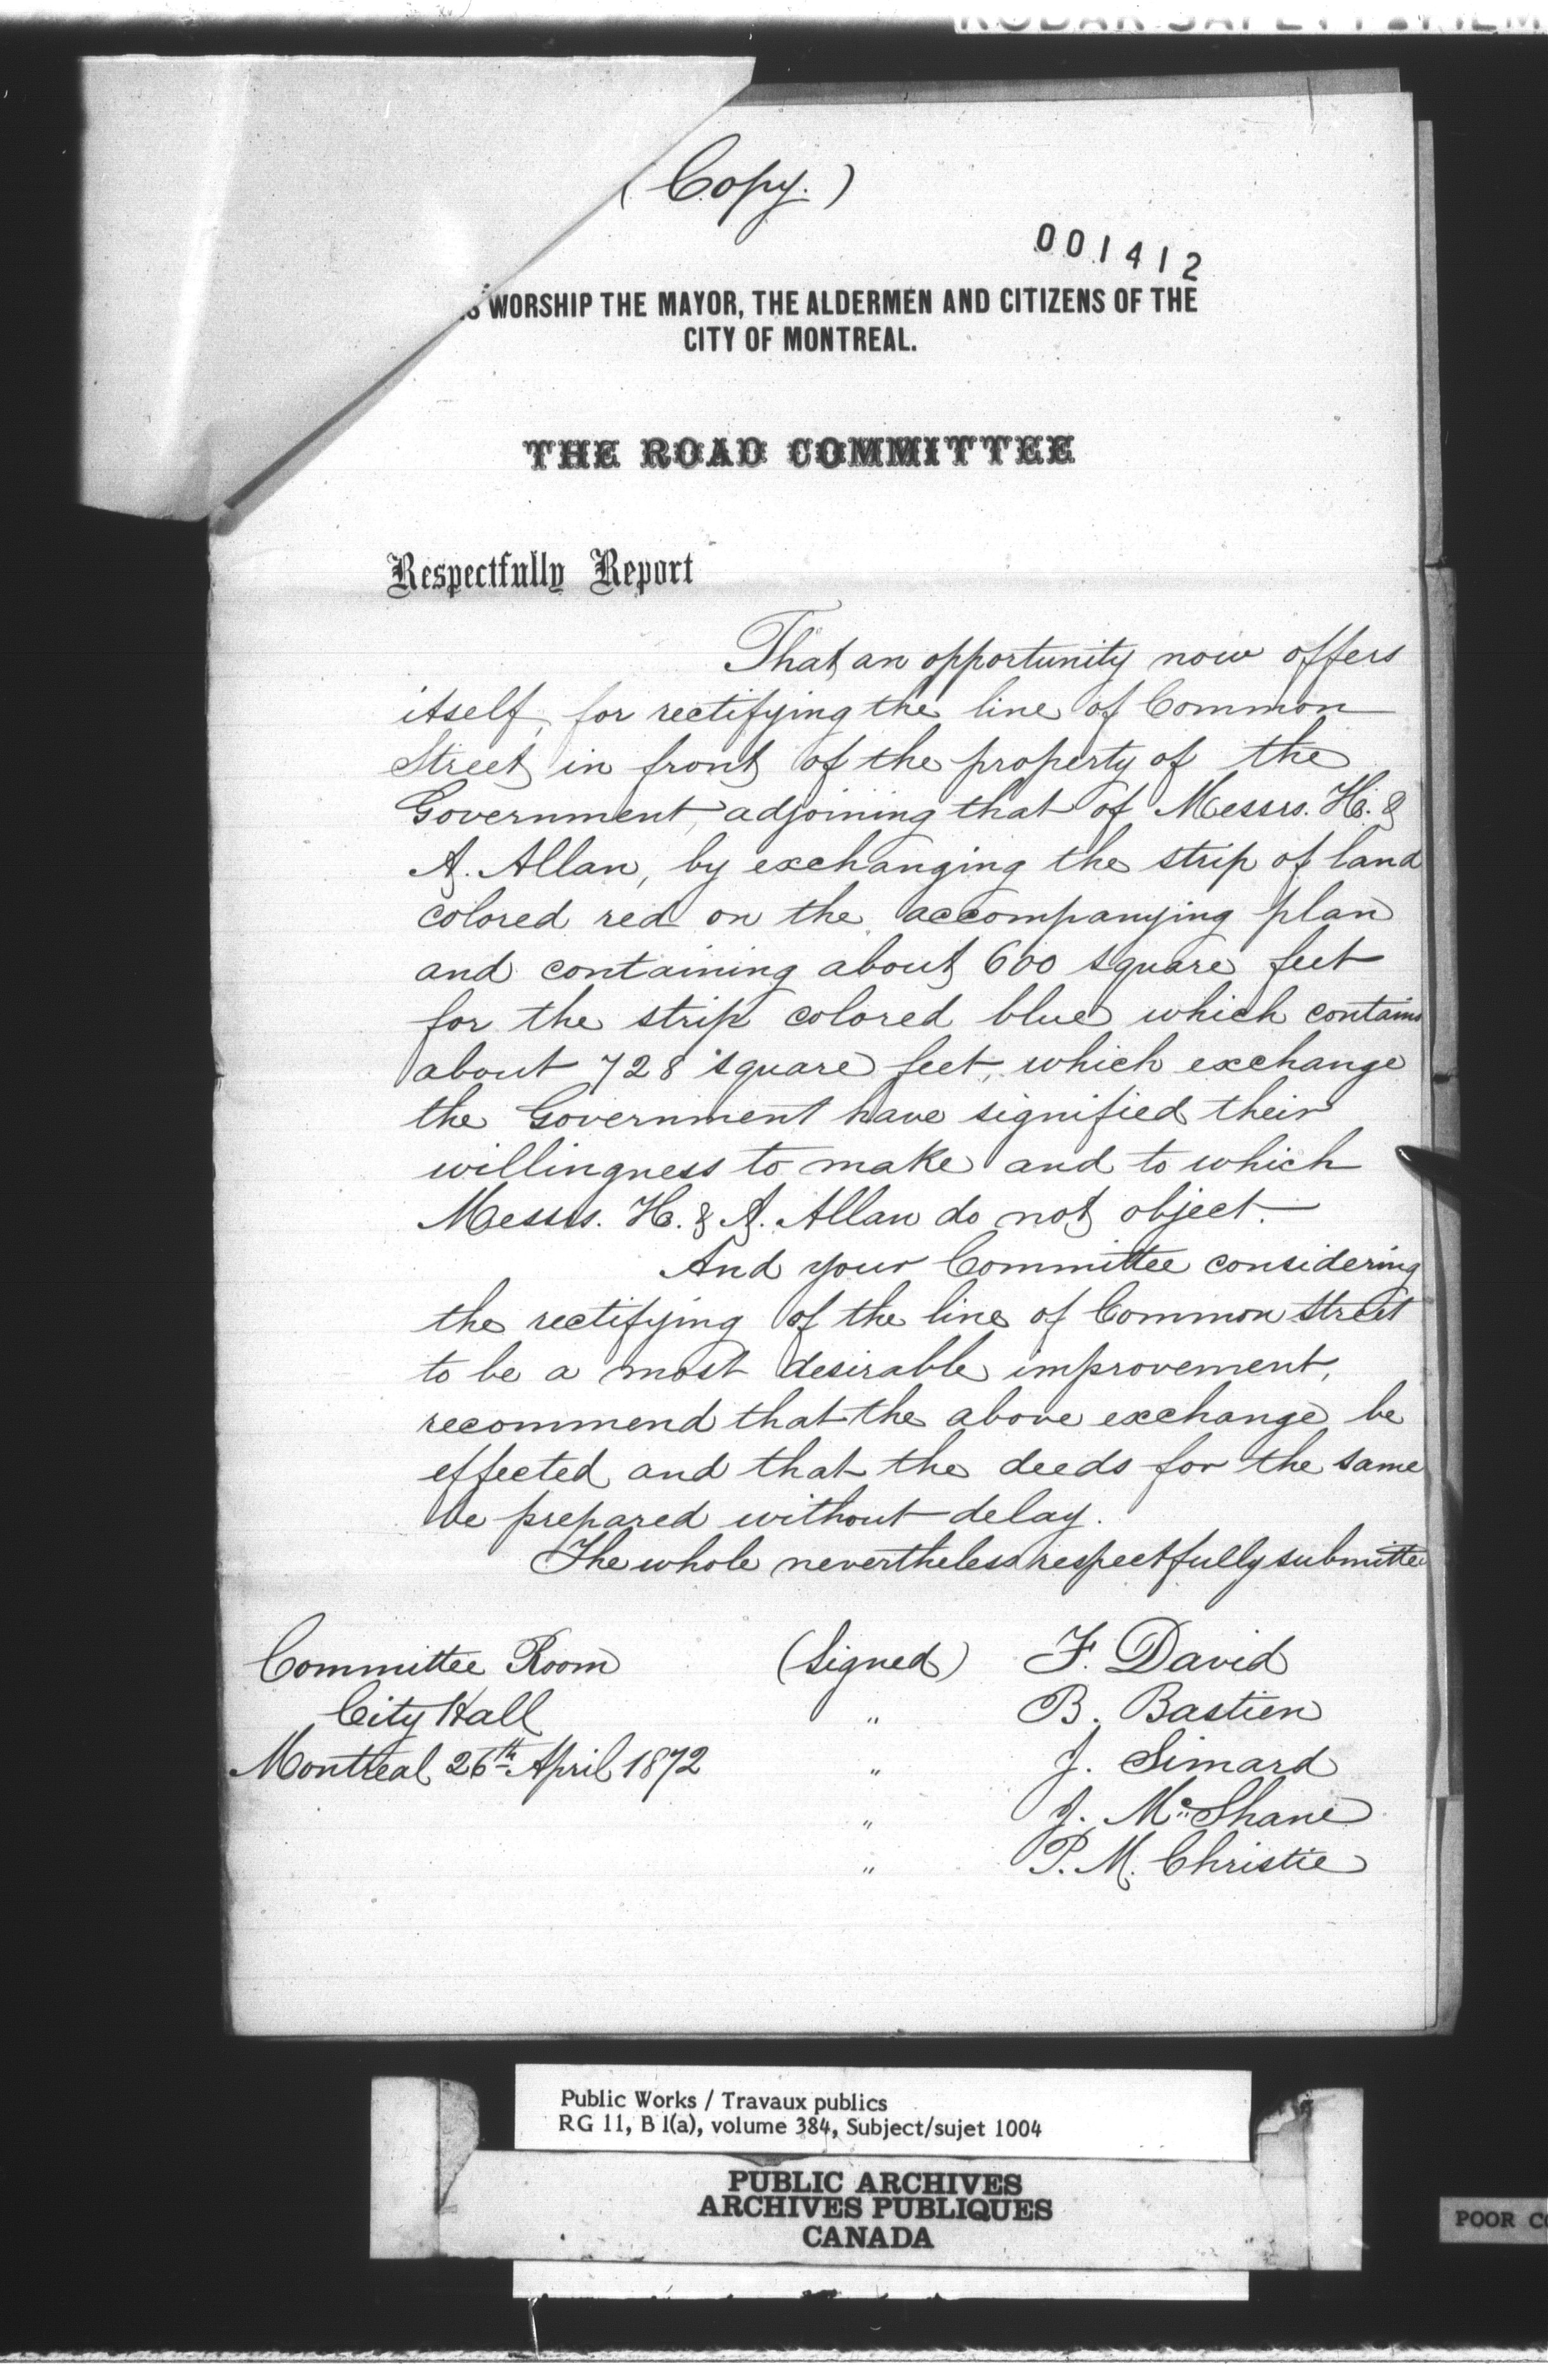 (Copy.)
001412
WORSHIP THE MAYOR, THE ALDERMEN AND CITIZENS OF THE
CITY OF MONTREAL.
THE ROAD COMMITTEE
Respectfully Report
That an opportunity now offers
itself, for rectifying the line of Common
Street in front of the property of the
Government, adjoining that of Messrs. H. &
A. Allan, by exchanging the strip of land
colored red on the accompanying plan
and containing about 600 square feet
for the strip colored blue which contains
about 728 square feet, which exchange
the Government have signified their
willingness to make and to which
Messrs. H. & A. Allan do not object.
And your Committee considering
the rectifying of the line of Common Street
to be a most desirable improvement,
recommend that the above exchange be
effected and that the deeds for the same
be prepared without delay.
The whole nevertheless respectfully submitted
Committee Room (Signed) F. David
City Hall " B. Bastien
Montreal 26th April 1872 " J. Simard
" J. McShane
" P. M. Christie
Public Works / Travaux publics
RG 11, B 1(a), volume 384, Subject/sujet 1004
PUBLIC ARCHIVES
ARCHIVES PUBLIQUES
CANADA
POOR